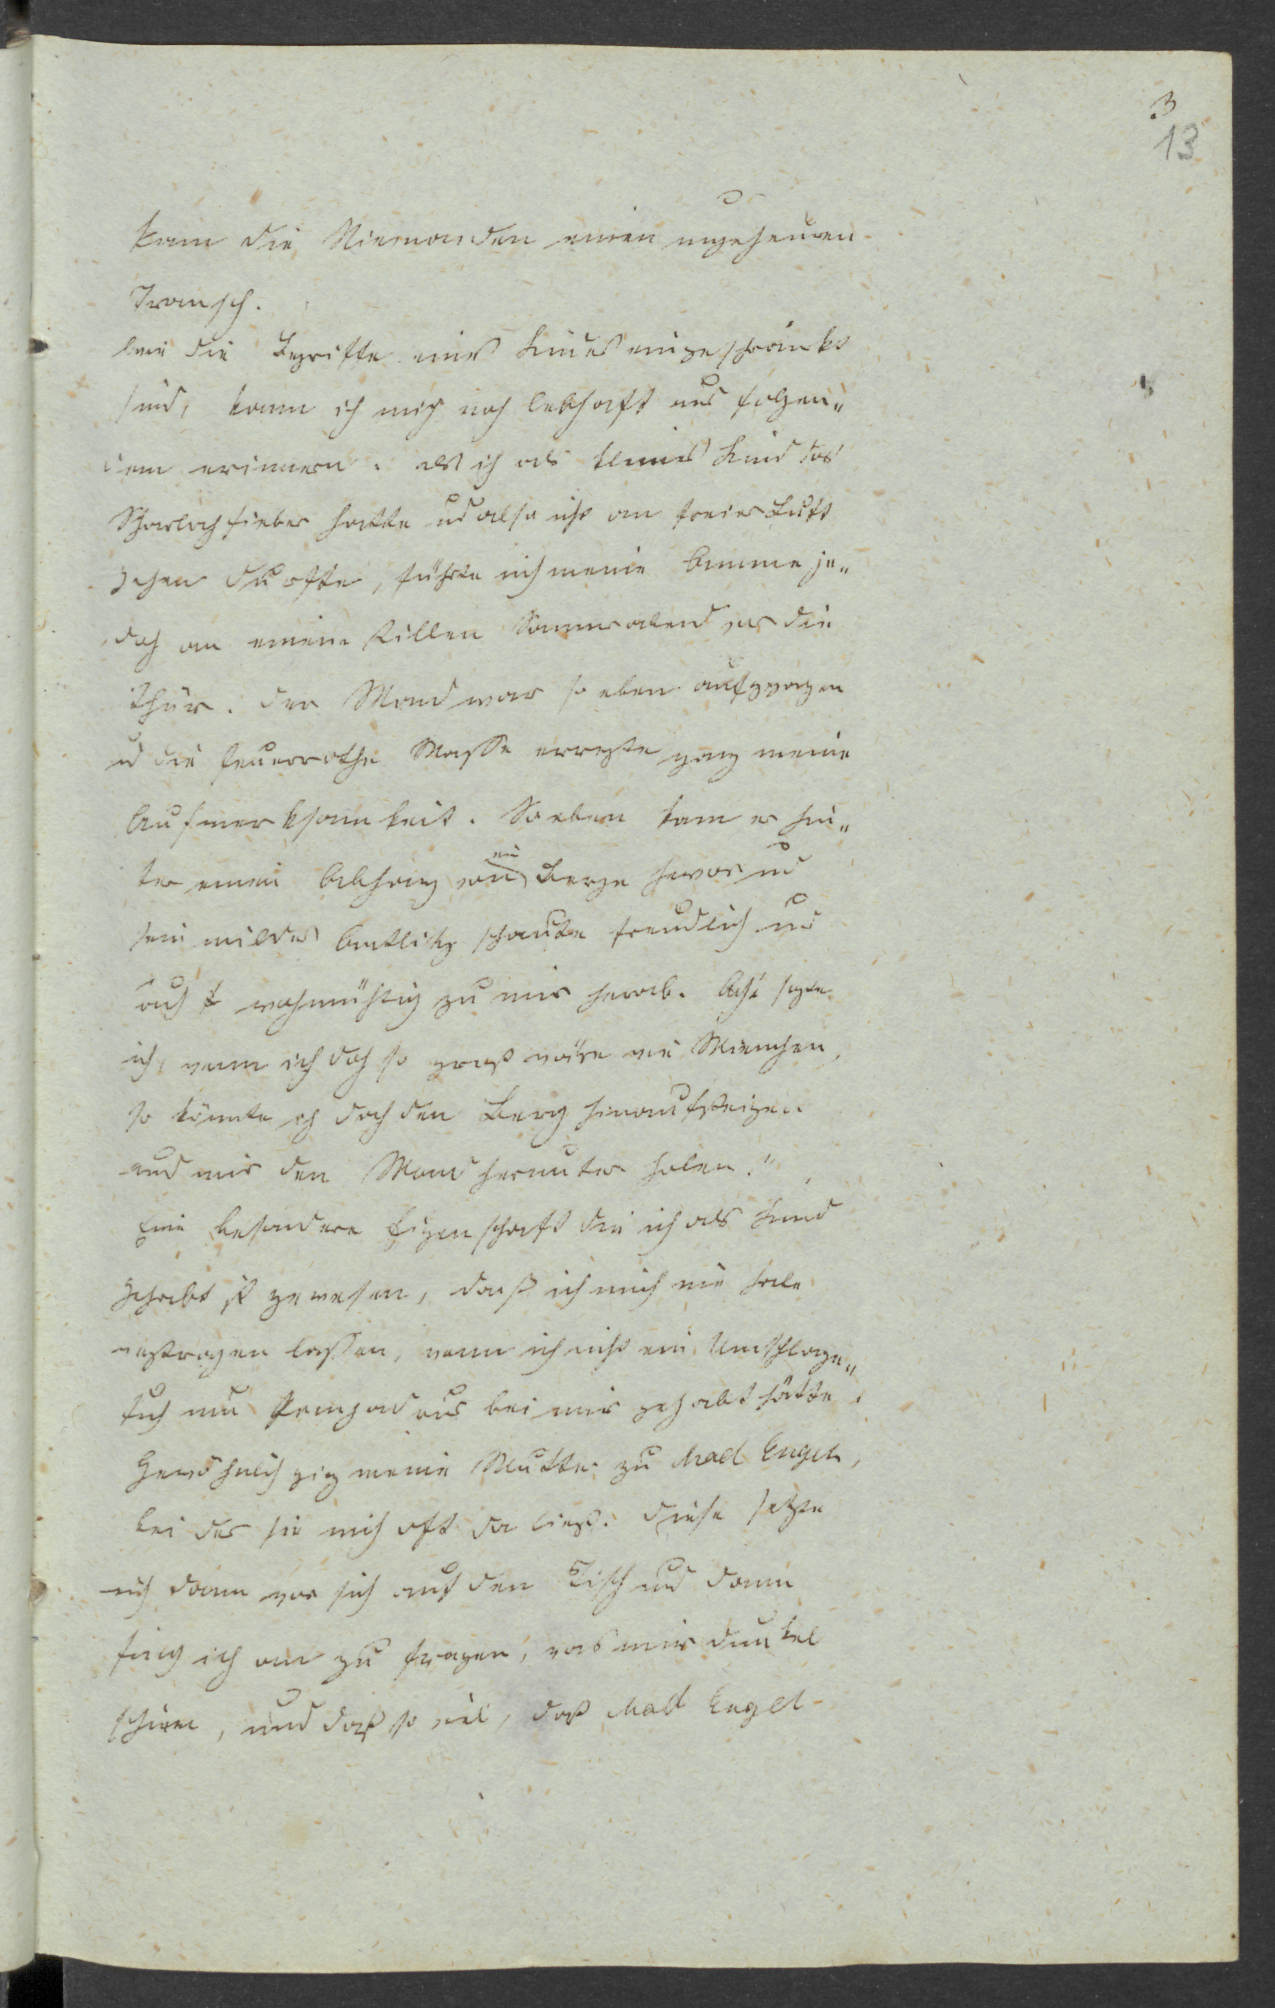 3
13
kam die Niemanden einen ungeheuren
Tramsch.
Wie die Begriffe eines Kindes eingeschränkt
sind, kann ich mich noch lebhaft aus folgen„
dem erinnern. Als ich als kleines Kind das
Scharlachfieber hatte und also nicht an freier Luft
gehen durfte, führte mich meine Amme je„
doch an einem stillen Sommerabend vor die
Thür. Der Mond war so eben aufgegangen
und die feuerrothe Masse erregte ganz meine
Aufmerksamkeit. So eben kam er hin„
ter einem Abhang vom Berge hervor und
sein mildes Antlitz schaute freundlich und
auch wehmüthig zu mir herab. Ach! sagte
ich, wenn ich doch so groß wäre wie Mienchen,
so könnte ich doch den Berg hinaufsteigen
und mir den Mond herunter holen."
Eine besondere Eigenschaft die ich als Kind
gehabt ist gewesen, daß ich mich nie habe
wegtragen lassen, wenn ich nicht ein Umschlage„
tuch und Pompadour bei mir gehabt hätte.
Gewöhnlich ging meine Mutter zu Mad Engel,
bei der sie mich oft da ließ. Diese setzte
mich dann vor sich auf den Tisch und dann
fing ich an zu fragen, was mir dunkel
schien, und daß so viel, daß Mad Engel